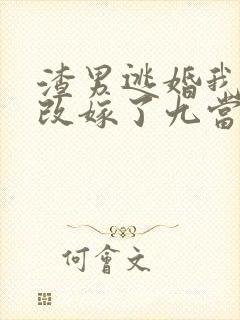 渣男逃婚我
改嫁了九當
何會文